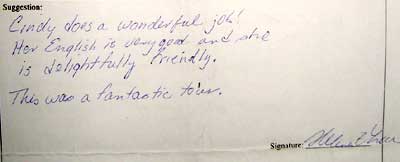 Suggestion:
Cindy does a wonderful job!
Her English is very good and she
is delightfully friendly.
This was a fantastic tour.
Signature: